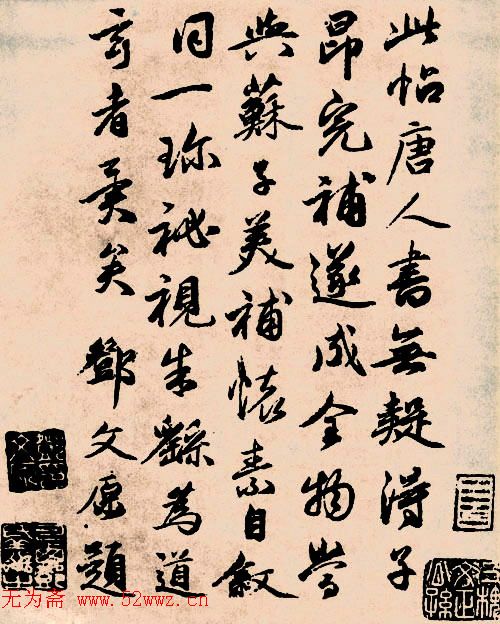 此帖唐人書無疑得子
昂完補遂成全物當
與蘇子美補懷素自叙
同一珍祕視朱繇為道
玄者異矣 鄧文原題
无为斋 www.52wwz.cn